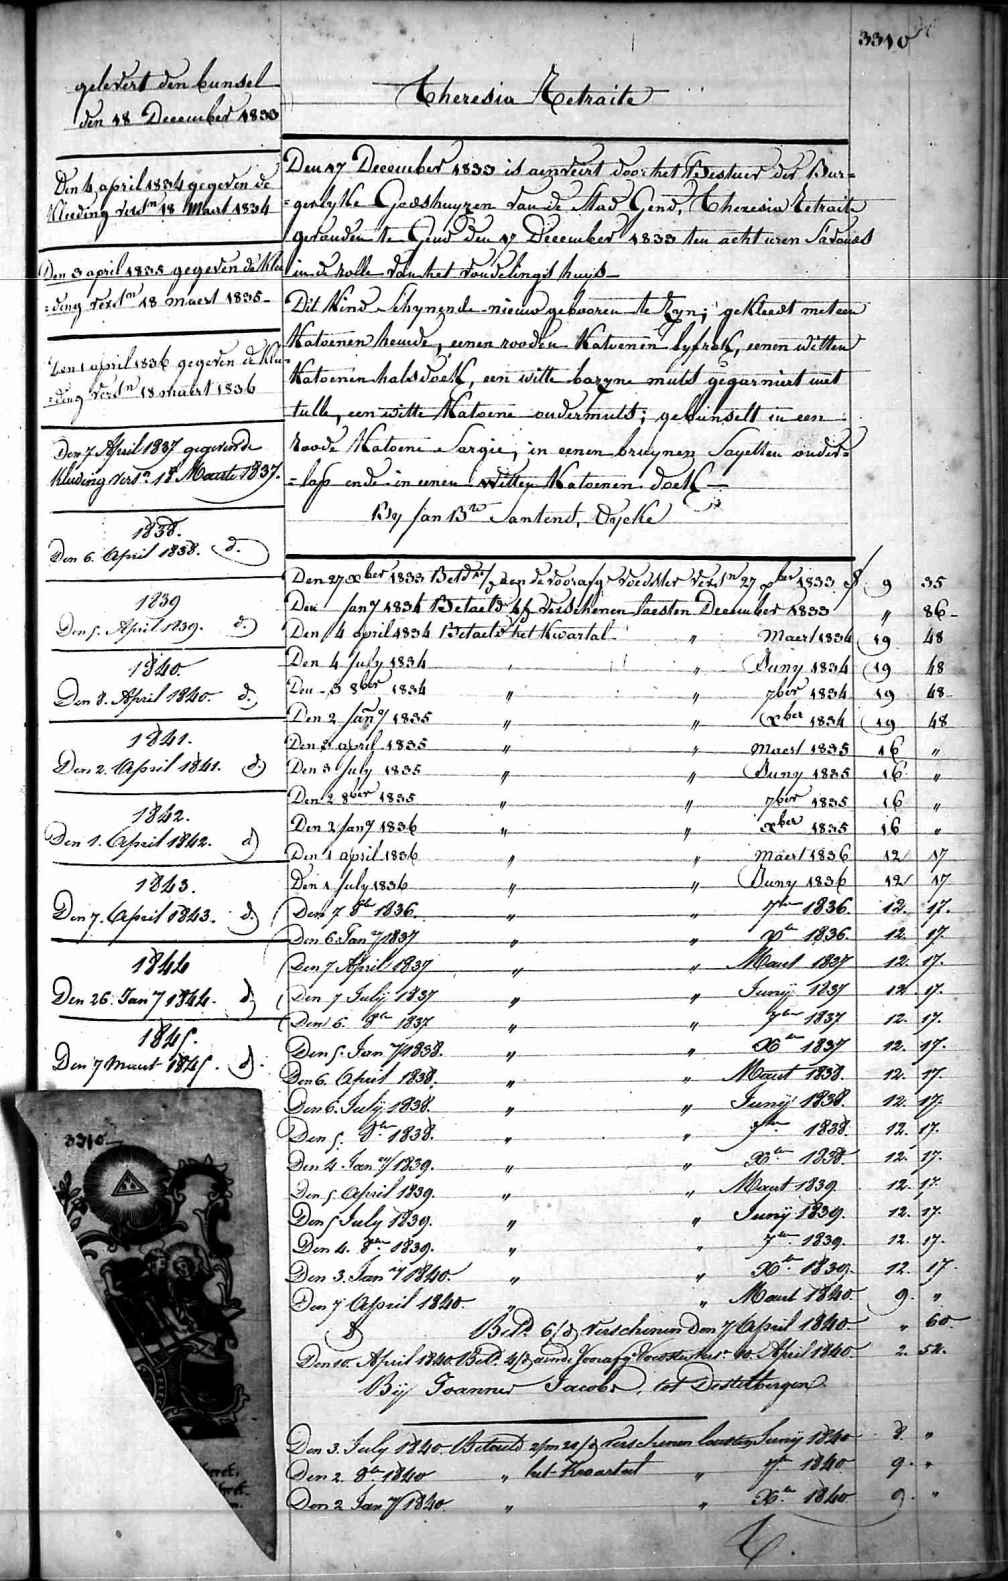 3310
Theresia Retraite
gelevert den bunsel
den 18 December 1833
Den 4 april 1834 gegeven de
kleeding verst.n 18 Maert 1834
Den 3 april 1835 gegeven de klee
=ding verst.n 18 maert 1835
Den 1 april 1836 gegeven de klee
=ding verst.n 18 maert 1836
Den 7 April 1837 gegeven de
kleeding verst.n 18 Maerte 1837.
1838.
Den 6. April 1838. d.
1839
Den 5. April 1839. d.
1840.
Den 8. April 1840. d.
1841.
Den 2. April 1841. d
1842.
Den 1. April 1842. d
1843.
Den 7. April 1843. d.
1844
Den 26. Jan.y 1844. d
1845.
Den 7 Maert 1845. d.
3310
Den 17 December 1833 is aenveert door het Bestuer der Bur=
=gerlyke Godshuyzen van de Stad Gend, Theresia Retraite
gevonden te Gend den 17 December 1833 ten acht uren S'avonds
in de rolle van het vondelings huys
Dit kind schynende nieuw gebooren te zyn; gekleedt met een
katoenen hemde, eenen rooden katoenen lyfrok, eenen witten
katoenen halsdoek, een witte bazyne muts gegarniert met
tulle, een witte katoene ondermuts; gebunselt in een
roode katoene Sargie, in eenen bruynen Sayetten onder=
=lap ende in eenen witten katoenen doek
By Jan B.te Dycke
Den 27 xber 1833 Bet.d aen de voorafg. voedster verst.n 27 xber 1833 9 35
Den Jan.y 1834 Betaelt verschenen laesten December 1833 " 86
Den 4 april 1834 Betaelt het kwartal " Maert 1834 19 48
Den 4 July 1834 " " Juny 1834 19 48
Den 3 8ber 1834 " " 7ber 1834 19 48
Den 2 Jan.y 1835 " " xber 1834 19 48
Den 3 april 1835 " " maert 1835 16 "
Den 3 July 1835 " " Juny 1835 16 "
Den 2 8ber 1835 " " 7ber 1835 16 "
Den 2 Jan.y 1836 " " xber 1835 16 "
Den 1 april 1836 " " maert 1836 12 17
Den 1 July 1836 " " Juny 1836 12 17
Den 7 8.er 1836 " " 7.ber 1836. 12. 17.
Den 6. Jan.y 1837 " " X.er 1836. 12. 17.
Den 7 April 1837 " " Maert 1837 12. 17.
Den 7 July 1837 " " Junij 1837 12 17.
Den 6. 8.er 1837 " " 7.ber 1837 12. 17.
Den 5. Jan.y 1838. " " X.ber 1837 12. 17.
Den 6. April 1838. " " Maert 1838. 12. 17.
Den 6. July 1838. " " Junij 1838. 12. 17.
Den 5. 8.er 1838. " " 7.ber 1838. 12. 17.
Den 4 Jan.ry 1839. " " X.er 1838 12. 17.
Den 5 April 1839. " " Maert 1839 12. 17.
Den 5 July 1839. " " Junij 1839. 12. 17.
Den 4. 8.er 1839. " " 7.er 1839. 12. 17.
Den 3. Jan.y 1840. " " X.er 1839. 12. 17.
Den 7 April 1840. " " Maert 1840. 9. "
Bet.d verschenen den 7 April 1840. " 60
Den 10. April 1840 Bet.d 10. April 1840. 2. 52.
Bij Joannes Jacobs, tot Destelbergen
Den 3. July 1840 Betaeld verschenen laesten Junij 1840 8. "
Den 2. 8.er 1840 " het Kwartal " 7.er 1840 9. "
Den 2 Jan.y 1840. " " X.er 1840 9. "